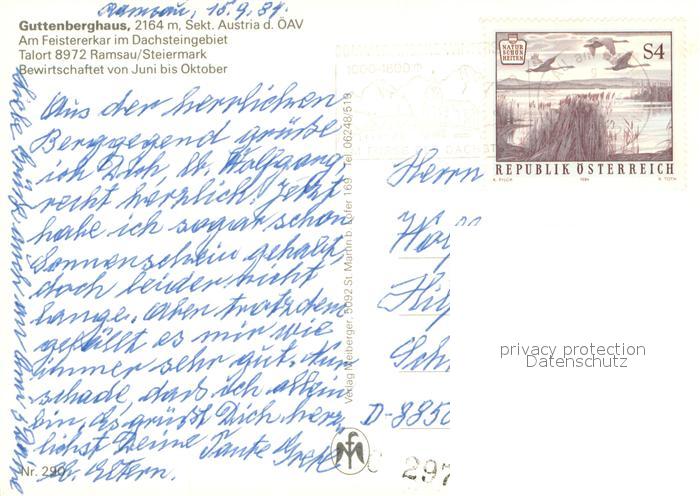 Ramsau, 15.9.89.
Guttenberghaus, 2164 m, Sekt. Austria d. ÖAV
Am Feistererkar im Dachsteingebiet
Talort 8972 Ramsau/Steiermark
Bewirtschaftet von Juni bis Oktober
Aus der herrlichen
Berggegend grüße
ich Dich, lb. Wolfgang,
recht herzlich! Jetzt
habe ich sogar schon
Sonnenschein gehabt,
doch leider nicht
lange. Aber trotzdem
gefällt es mir wie
immer sehr gut. Nur
schade, dass ich allein
bin. Es grüßt Dich herz-
lichst Deine Tante Gretl
Eltern.
Liebe Grüße auch an
Nr. 290
Verlag Neiberger, 5092 St. Martin b. Lofer 169 Tel. 06248/519
1000-1600m
DACHST
NATUR
SCHÖN
HEITEN
S4
REPUBLIK ÖSTERREICH
A. PILCH 1984 R. TOTH
Herrn
D-8850
297
privacy protection
Datenschutz